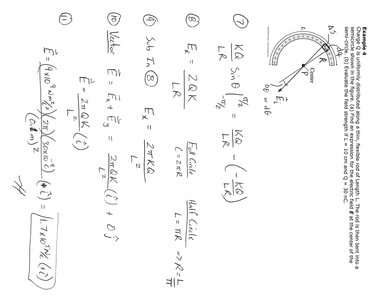 Example 4
Charge Q is uniformly distributed along a thin, flexible rod of Length L. The rod is then bent into a
semicircle shown in the figure. (a) Find an expression for the electric field E at the center of the
semi-circle. (b) Evaluate the field strength if L = 10 cm and Q = 30 nC.
ΔS
dq
L
R
Center
P
θ
E⃗i
⑦ KQ/LR Sin θ |π/2 -π/2 = KQ/LR - (-KQ/LR)
⑧ Ex = 2QK/LR
Full Circle
L = 2πR
Half Circle
L = πR => R = L/π
⑨ Sub In ⑧ Ex = 2πKQ/L²
⑩ Vector E⃗ = E⃗x + E⃗y = 2πQK/L² (î) + 0 ĵ
E⃗ = 2πQK/L² (î)
⑪ E⃗ = (9x10⁹ Nm²/c²)(2π)(30x10⁻⁹c)/(0.1m)² (+î) = 1.7x10⁵ N/c (+î)